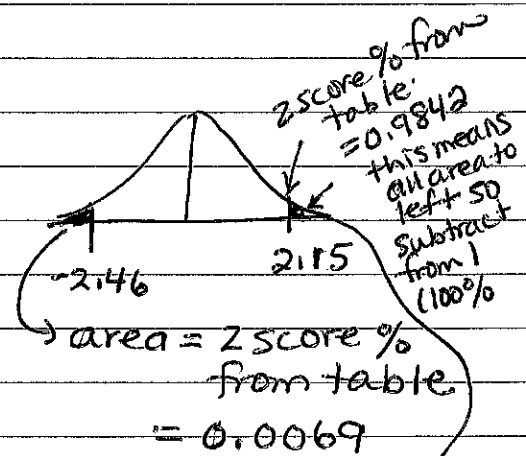 z score % from
table.
= 0.9842
this means
all area to
left so
subtract
from 1
(100%
-2.46
2.15
area = z score %
from table
= 0.0069